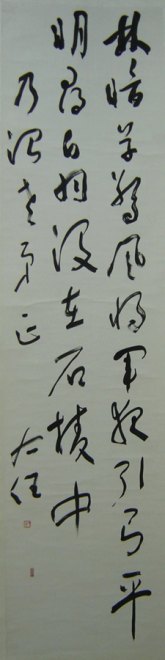 林暗草驚風將軍夜引弓平
明尋白羽没在石棱中
乃滔老弟正
右任